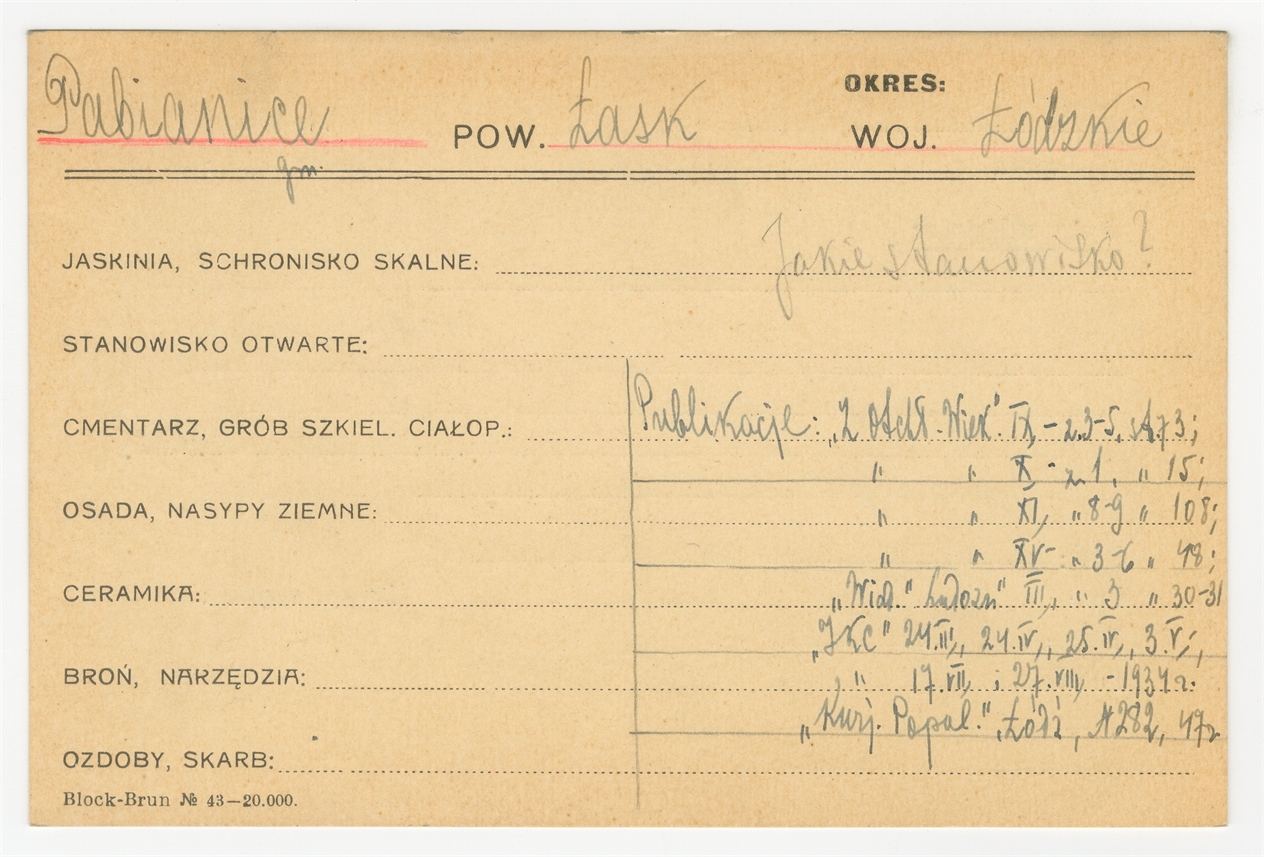 OKRES:
Pabianice POW. Łask WOJ. Łódzkie
gm.
JASKINIA, SCHRONISKO SKALNE: Jakie stanowisko?
STANOWISKO OTWARTE:
CMENTARZ, GRÓB SZKIEL. CIAŁOP.: Publikacje: „Z Otchł. Wiek" IX, - z. 3-5, st. 73;
" " X - z. 1, " 15;
OSADA, NASYPY ZIEMNE: " " XI, " 8-9 " 108;
" " XV - " 3-6 " 48;
CERAMIKA: „Wiad." Ludozn" III, " 3 " 30-31
„IKC" 24.III, 24.IV, 25.IV, 3.V,
BROŃ, NARZĘDZIA: " 17.VII, i 27.VIII, - 1934 r.
„Kurj. Popul." Łódź, № 282, 47 r
OZDOBY, SKARB:
Block-Brun № 43—20.000.